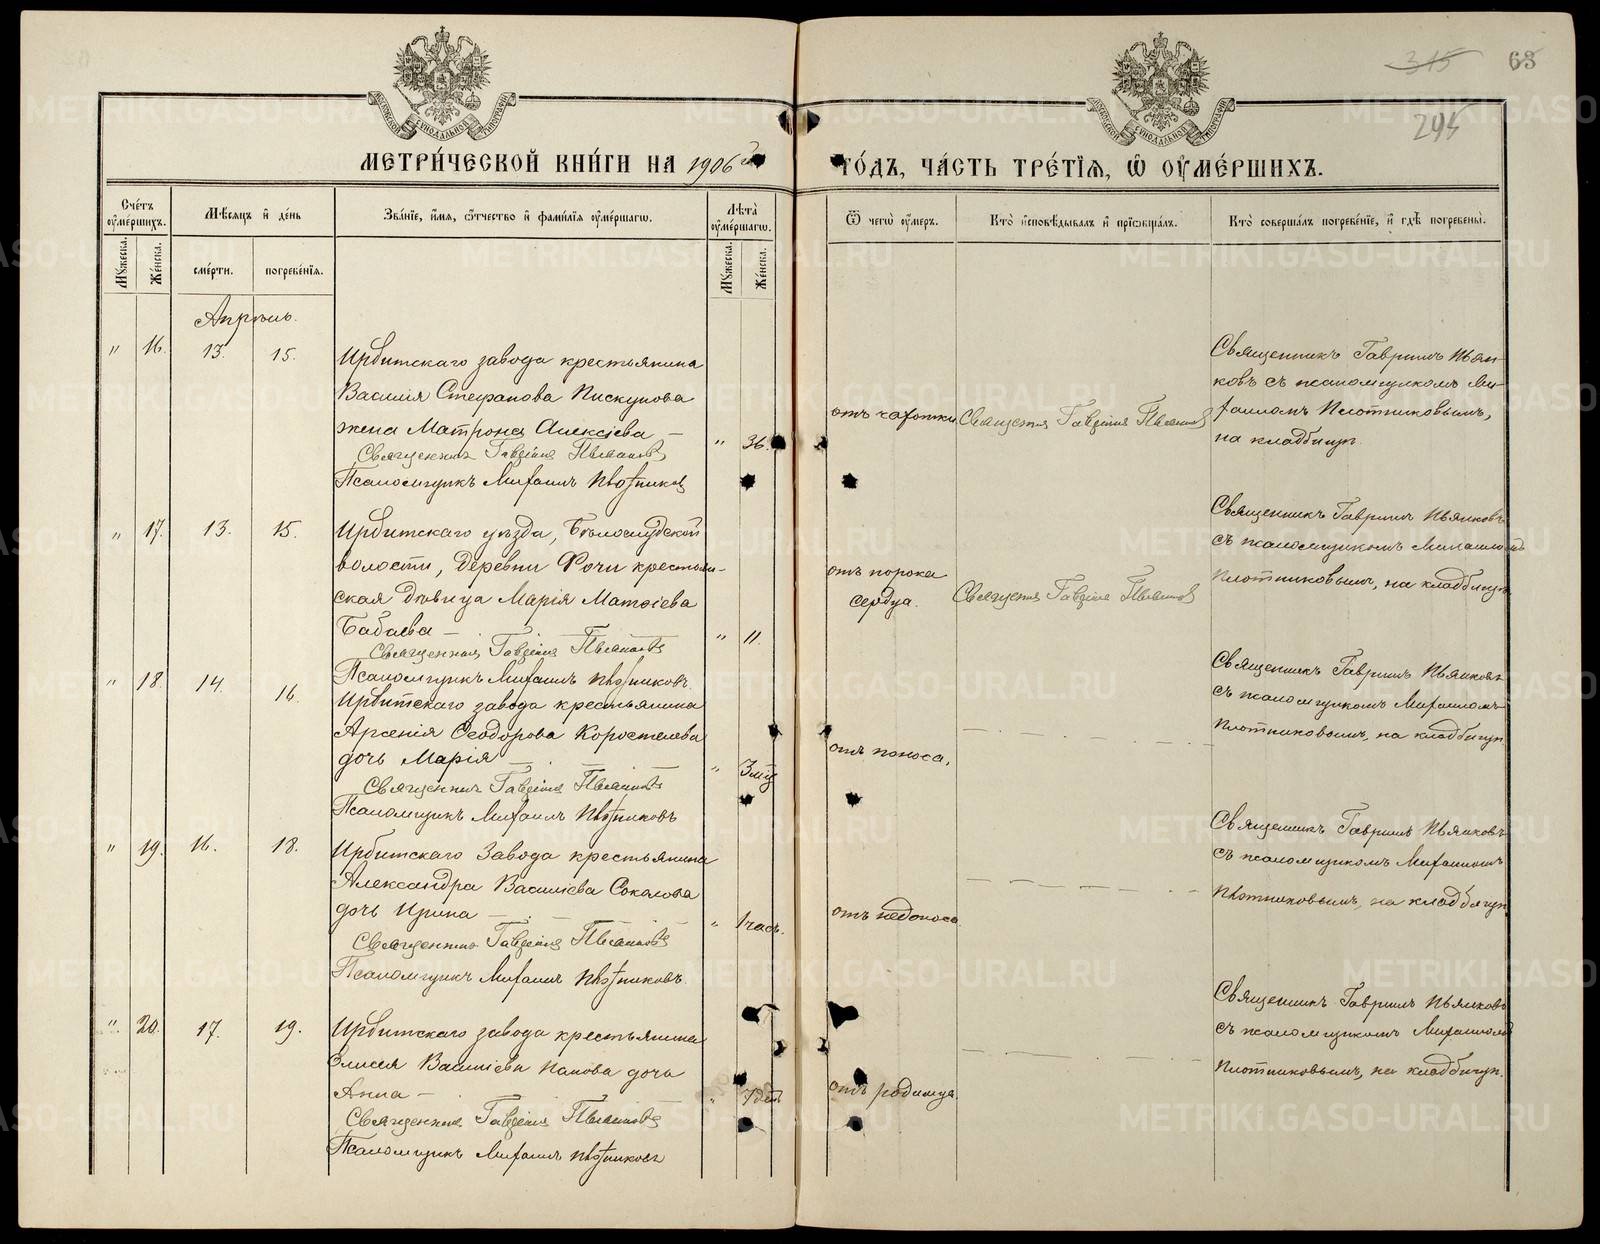 315
63
295
МОСКОВСКОЙ СѴНОДАЛЬНОЙ ТИПОГРАФІИ
МОСКОВСКОЙ СѴНОДАЛЬНОЙ ТИПОГРАФІИ
МЕТРИ́ЧЕСКОЙ КНИ́ГИ НА 1906 й
ГО́ДЪ, ЧА́СТЬ ТРЕ́ТІѦ, Ѡ҆ ОУ҆МЕ́РШИХЪ.
Сче́тъ оу҆ме́ршихъ.
Мѣ́сѧцъ и҆ де́нь
Зва́нїе, и҆́мѧ, ѻ҆́тчество и҆ фами́лїѧ оу҆ме́ршагѡ.
Лѣ́та оу҆ме́ршагѡ.
Ѿ чегѡ̀ оу҆́меръ.
Кто̀ и҆сповѣ́дывалъ и҆ прїѡбща́лъ.
Кто̀ соверша́лъ погребе́нїе, и҆ гдѣ̀ погребены̀.
Мꙋ́жеска.
Же́нска.
сме́рти.
погребе́нїѧ.
Мꙋ́жеска.
Же́нска.
Апрѣль.
" 16. 13. 15.
Ирбитскаго завода крестьянина
Василія Стефанова Пискунова
жена Матрона Алексіева —
" 36.
Священникъ Гавріилъ Пьянковъ
Псаломщикъ Михаилъ Плотников
отъ чахотки
Священникъ Гавріилъ Пьянковъ
Священникъ Гавріилъ Пьян-
ковъ съ псаломщикомъ Ми-
хаиломъ Плотниковымъ,
на кладбищѣ.
" 17. 13. 15.
Ирбитскаго уѣзда, Бѣлослудской
волости, деревни Фочи крестьян-
ская дѣвица Марія Матѳіева
Бабаева —
" 11.
Священникъ Гавріилъ Пьянковъ
Псаломщикъ Михаилъ Плотниковъ.
отъ порока
сердца.
Священникъ Гавріилъ Пьянковъ
Священникъ Гавріилъ Пьянковъ
съ псаломщикомъ Михаиломъ
Плотниковымъ, на кладбищѣ
" 18. 14. 16.
Ирбитскаго завода крестьянина
Арсенія Ѳеодорова Коростелева
дочь Марія —
" 3 мѣс
Священникъ Гавріилъ Пьянковъ
Псаломщикъ Михаилъ Плотниковъ
отъ поноса,
Священникъ Гавріилъ Пьянковъ
съ псаломщикомъ Михаиломъ
Плотниковымъ, на кладбищѣ.
" 19. 16. 18.
Ирбитскаго Завода крестьянина
Александра Василіева Соколова
дочь Ирина —
" 1 часъ.
Священникъ Гавріилъ Пьянковъ
Псаломщикъ Михаилъ Плотниковъ.
отъ недоноса
Священникъ Гавріилъ Пьянковъ
съ псаломщикомъ Михаиломъ
Плотниковымъ, на кладбищѣ.
" 20. 17. 19.
Ирбитскаго завода крестьянина
Елисея Василіева Попова дочь
Анна —
" 7 дн.
Священникъ Гавріилъ Пьянковъ
Псаломщикъ Михаилъ Плотниковъ
отъ родимца.
Священникъ Гавріилъ Пьянковъ
съ псаломщикомъ Михаиломъ
Плотниковымъ, на кладбищѣ.
METRIKI.GASO-URAL.RU